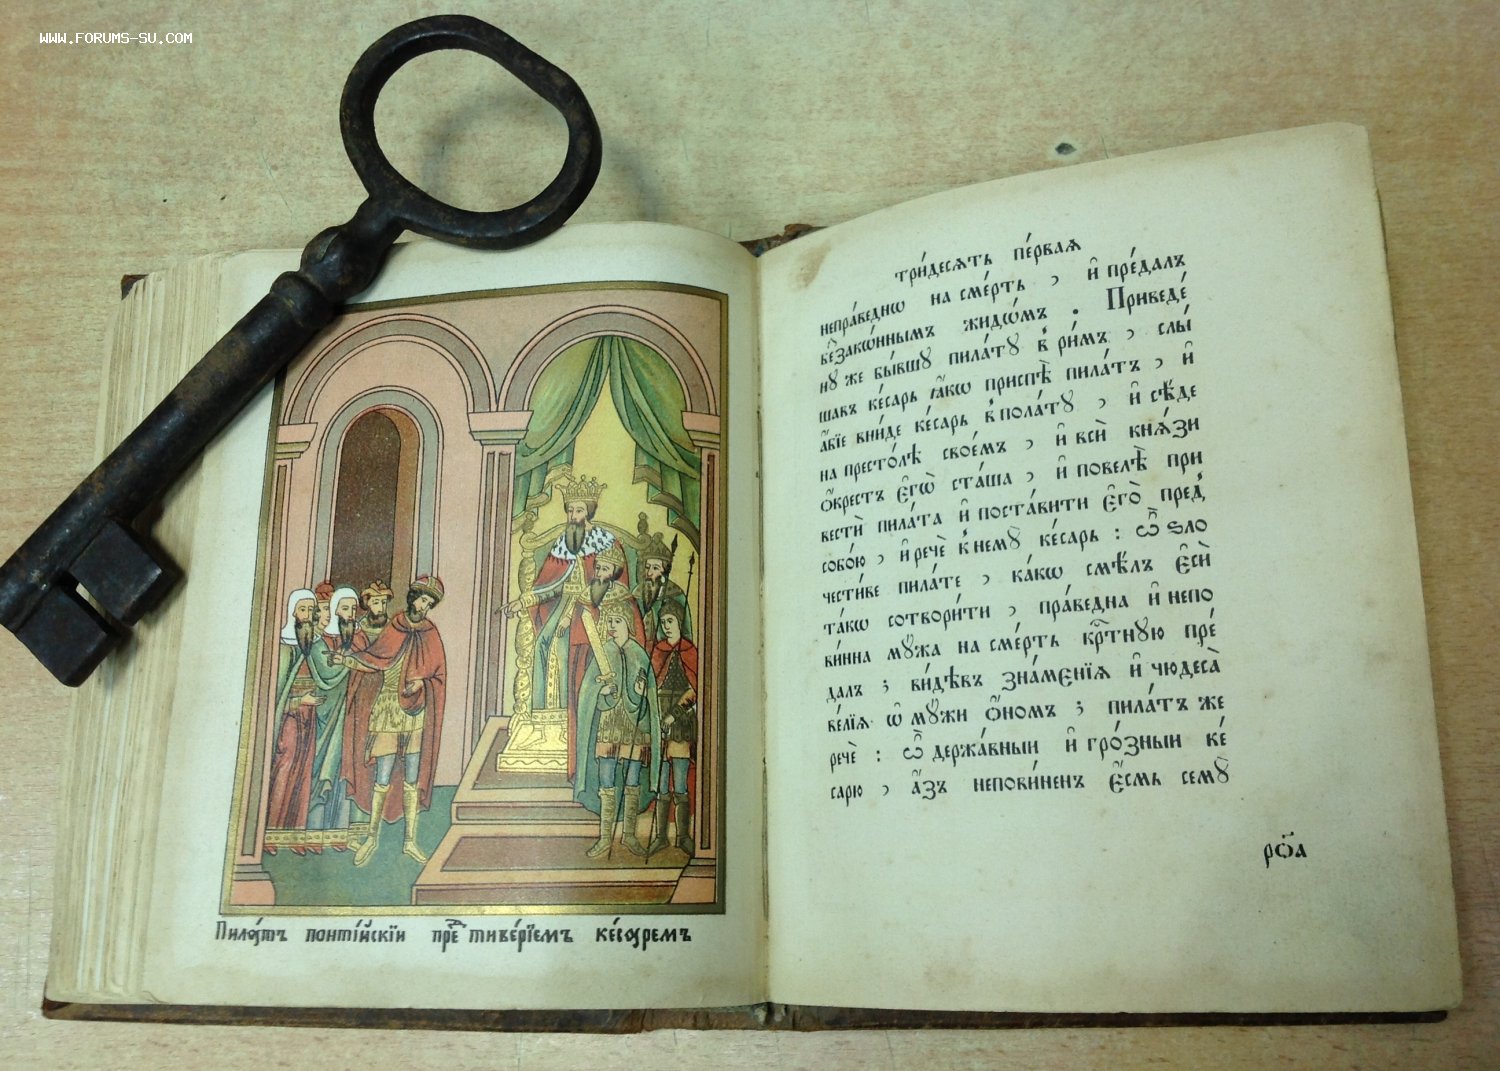 WWW.FORUMS-SU.COM
Пила́тъ понті́йскїи прⷣе тиве́рїемъ ке́саремъ
три́десѧть пе́рваѧ
непра́веднѡ на сме́рть , и҆ пре́далъ
беззако́ннымъ жидѡ́мъ . Приведе́
нꙋ же бы́вшꙋ пила́тꙋ в̾ ри́мъ , слы́
шавъ ке́сарь ꙗ҆́кѡ приспѣ̀ пила́тъ , и҆
а҆́бїе вни́де ке́сарь в̾ пола́тꙋ , и҆ сѣ́де
на престо́лѣ свое́мъ , и҆ всѝ кнѧ́зи
ѻ҆́крестъ є҆гѡ̀ ста́ша , и҆ повелѣ̀ при
вестѝ пила́та и҆ поста́вити є҆го̀ пред̾
собо́ю , и҆ речѐ к̾ немꙋ̀ ке́сарь : ѽ ѕло
чести́ве пила́те , ка́кѡ смѣ́лъ є҆сѝ
та́кѡ сотвори́ти , пра́ведна и҆ непо
ви́нна мꙋ́жа на сме́рть крⷭ҇тнꙋю пре́
далъ ; ви́дѣвъ зна́менїѧ и҆ чюдеса̀
ве́лїѧ ѡ҆ мꙋ́жи ѻ҆́номъ ; пила́тъ же
речѐ : ѽ держа́вныи и҆ гро́зныи ке́
сарю , а҆́зъ непови́ненъ є҆́смь семꙋ̀
рѻ҃а